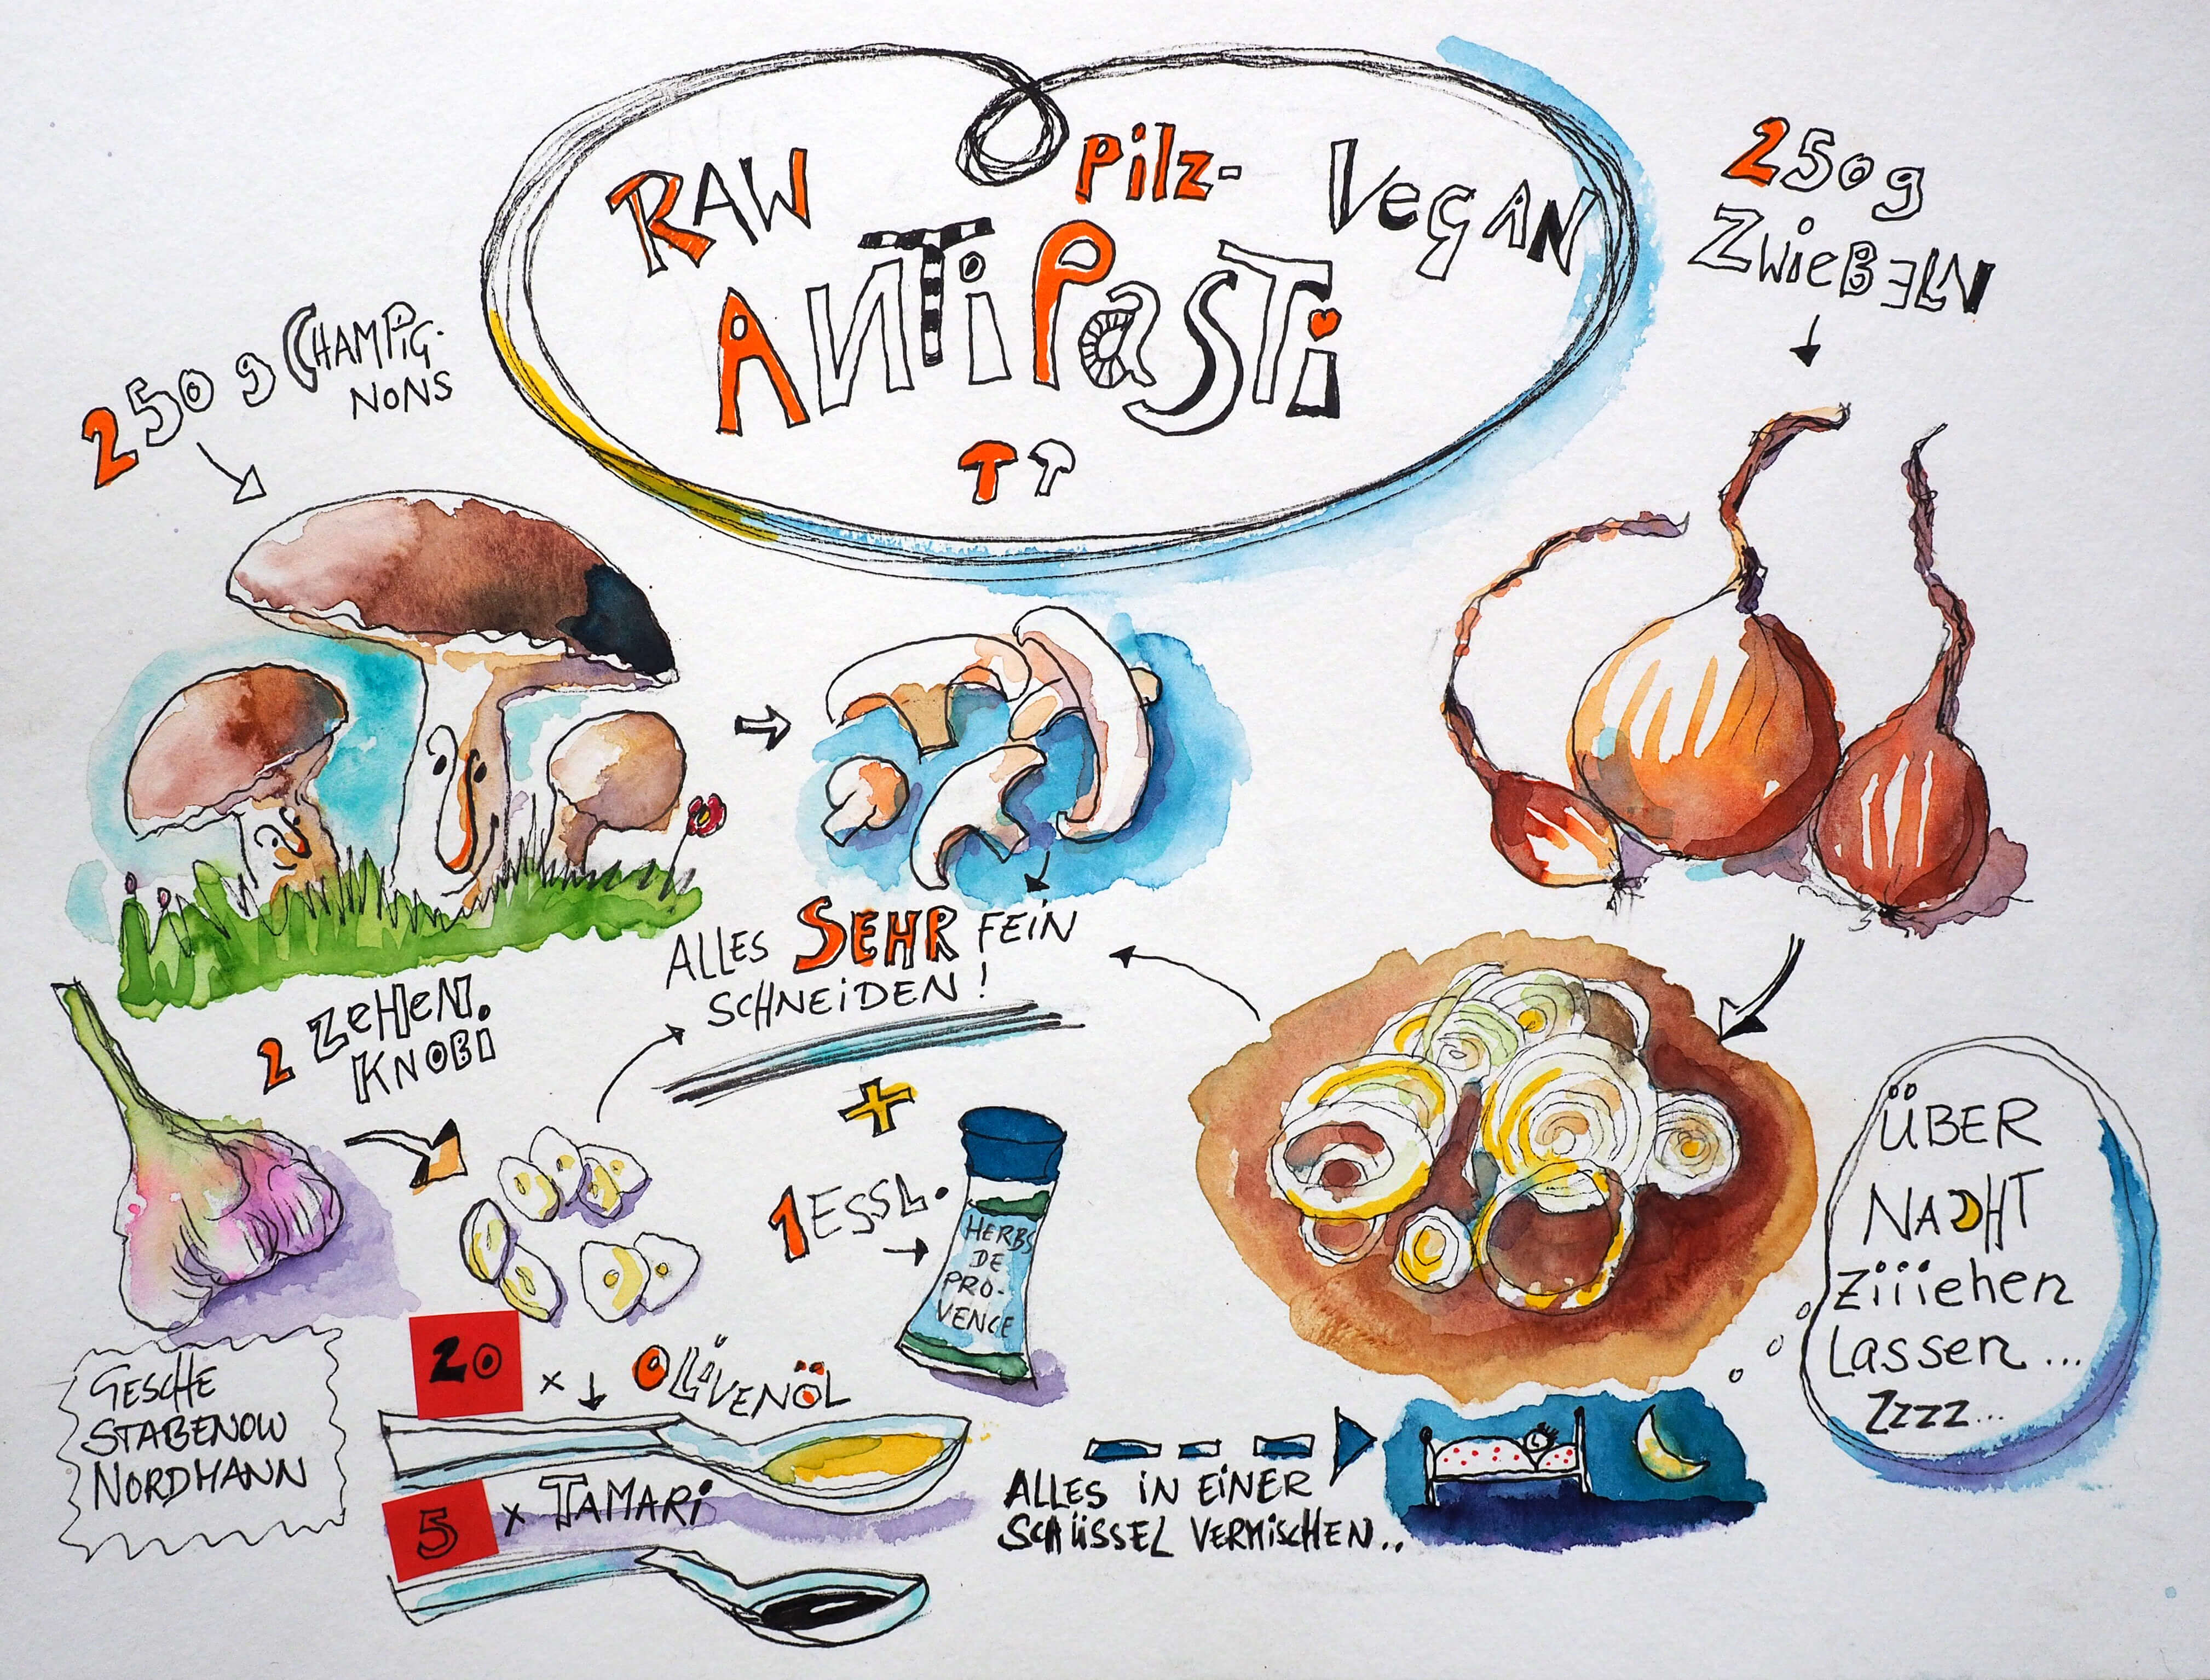 RAW Pilz- VEGAN
ANTiPaSTi
250g
ZWieBELN
250 g CHAMPiG-
NONS
ALLES SEHR FEiN
SCHNEiDEN!
2 ZeHeN.
KNOBI
+
1 ESSL.
HERBS
DE
PRO-
VENCE
ÜBER
NACHT
Ziiiehen
Lassen...
Zzzz...
20 x OLLiVENÖL
5 x TAMARi
GESCHE
STABENOW
NORDMANN
ALLES iN EiNER
SCHÜSSEL VERMiSCHEN..